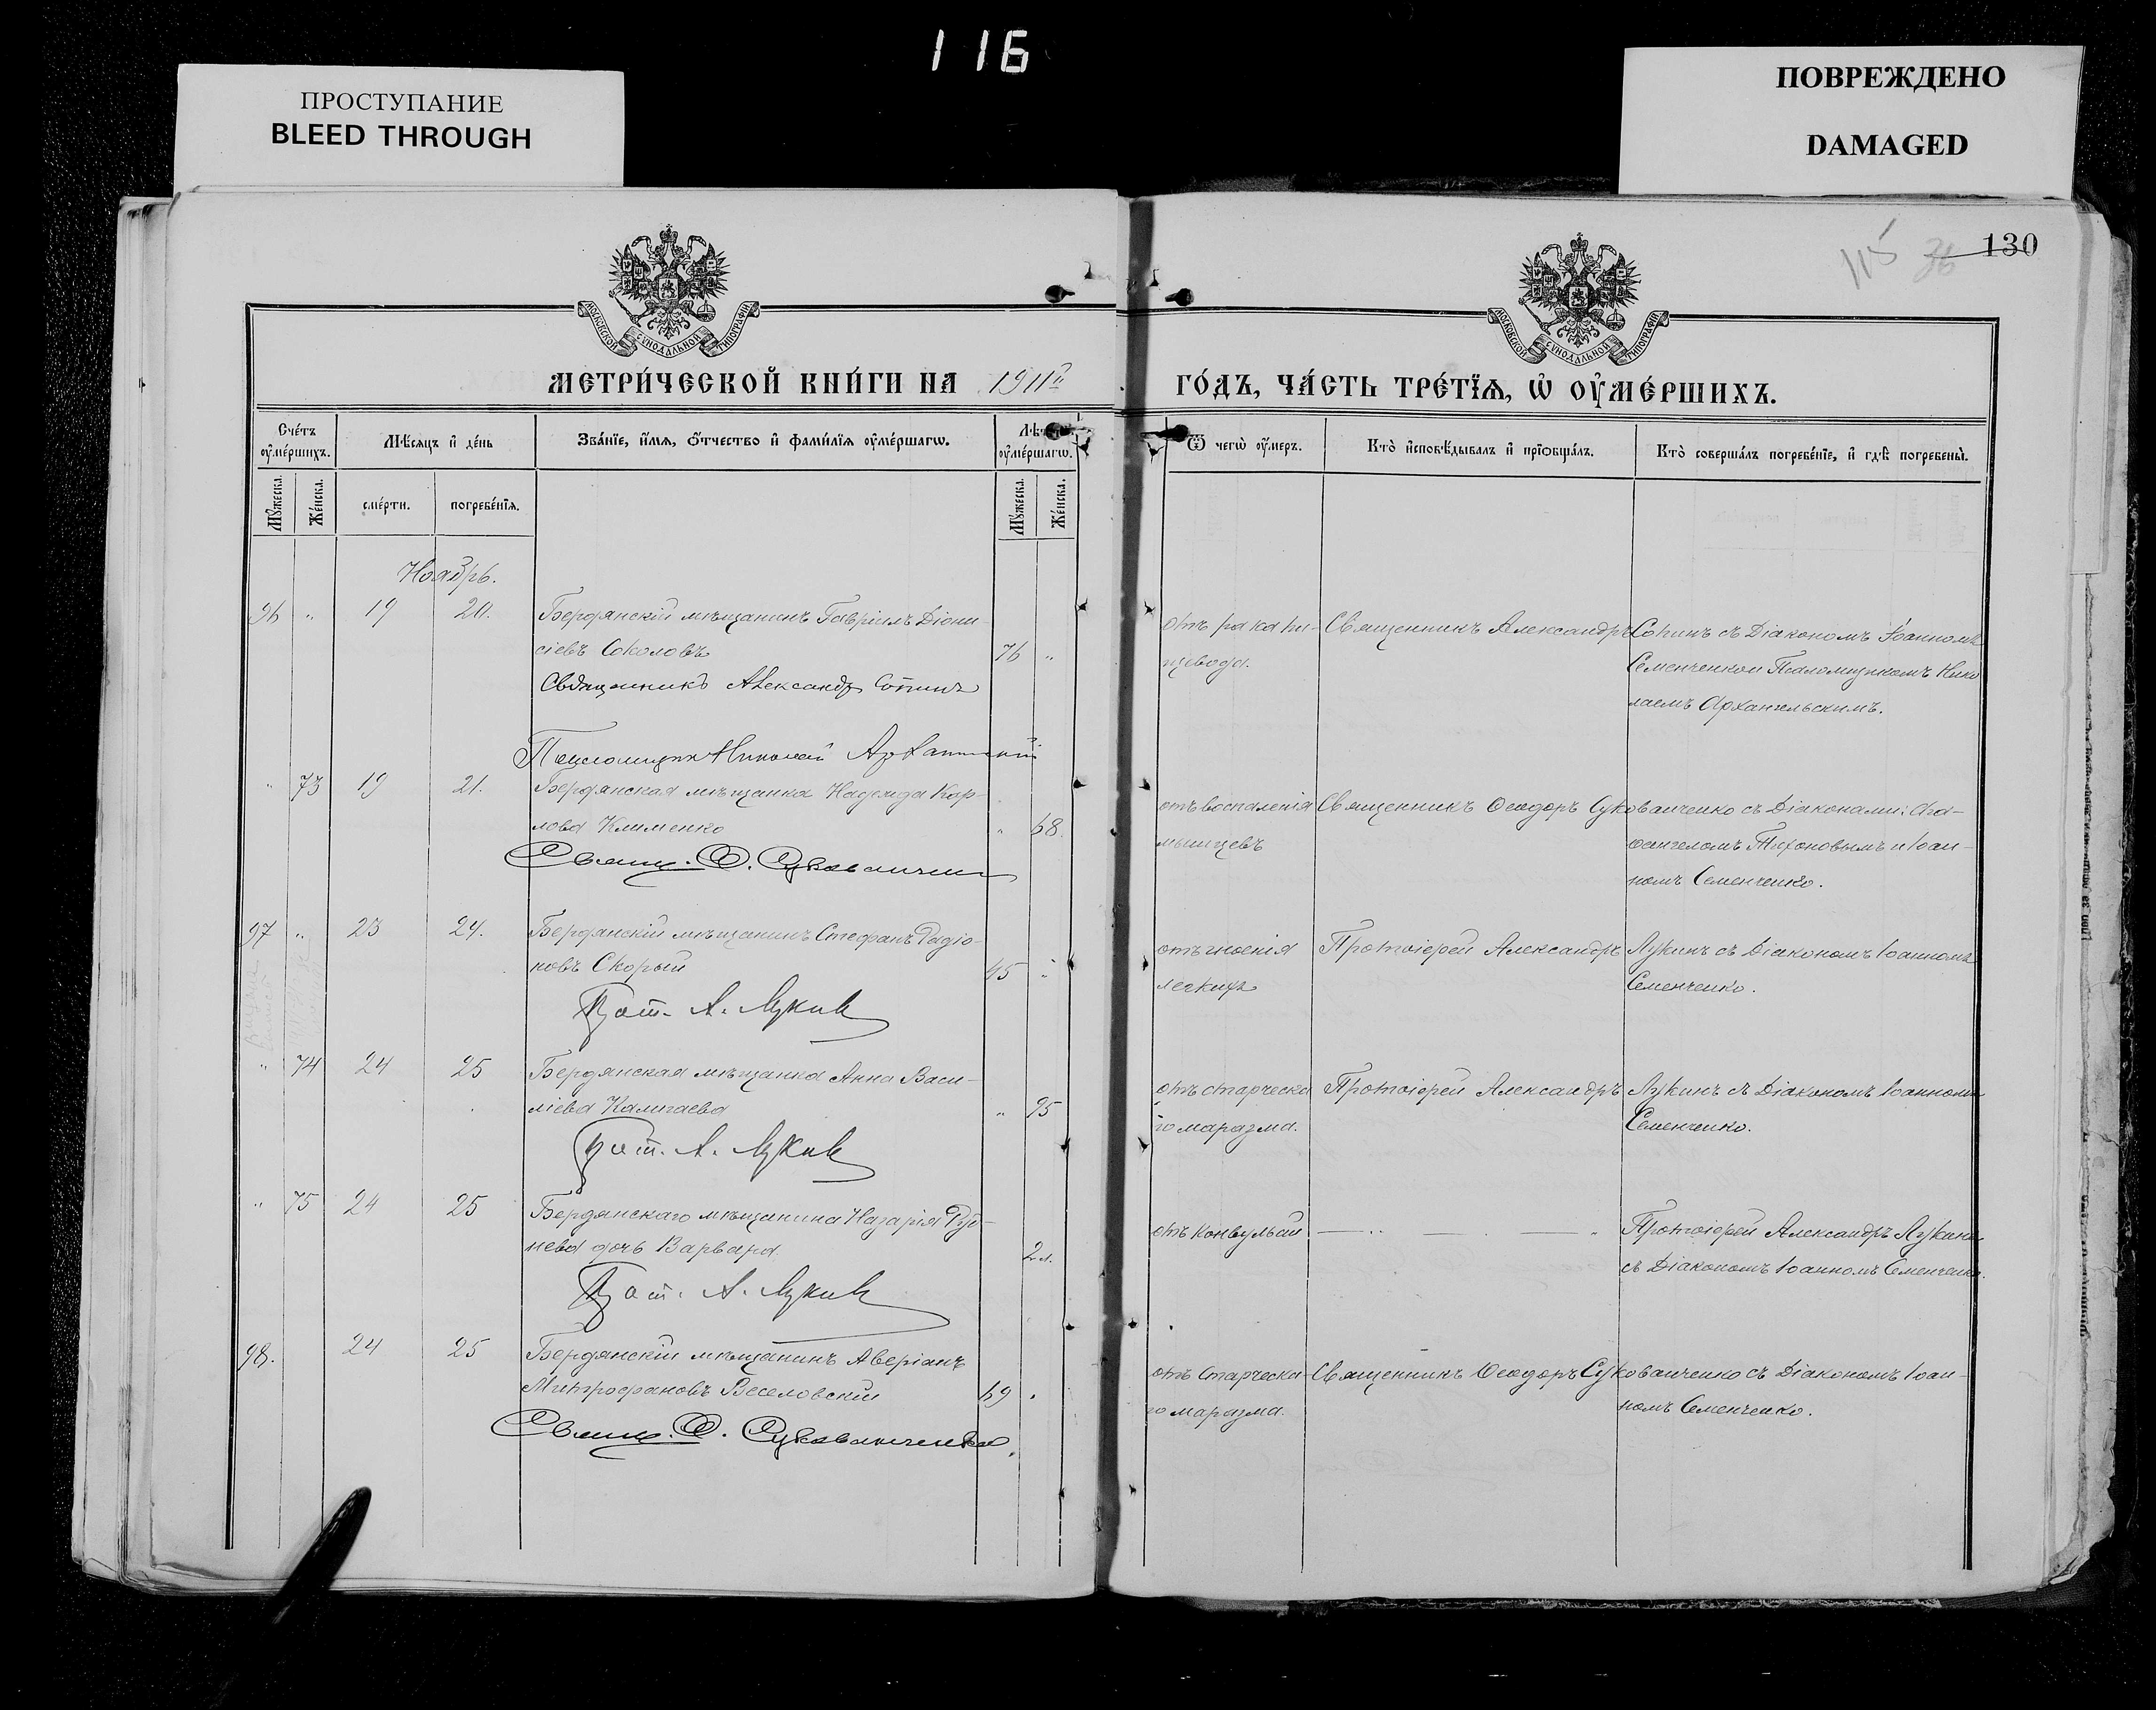 116
ПРОСТУПАНИЕ
BLEED THROUGH
ПОВРЕЖДЕНО
DAMAGED
115 36 130
МОСКОВСКОЙ СѴНОДАЛЬНОЙ ТИПОГРАФІИ
МОСКОВСКОЙ СѴНОДАЛЬНОЙ ТИПОГРАФІИ
МЕТРИ́ЧЕСКОЙ КНИ́ГИ НА 1911й ГО́ДЪ, ЧА́СТЬ ТРЕ́ТЇѦ, Ѡ҆ ОУ҆МЕ́РШИХЪ.
Счётъ оу҆ме́ршихъ.
Мѣ́сяцъ и҆ де́нь
Зва́нїе, и҆́мѧ, ѻ҆́тчество и҆ фами́лїѧ оу҆ме́ршагѡ.
Лѣ́та оу҆ме́ршагѡ.
Ѿ чегѡ̀ оу҆́меръ.
Кто̀ и҆сповѣ́дывалъ и҆ прїѡбща́лъ.
Кто̀ соверша́лъ погребе́нїе, и҆ гдѣ̀ погребены̀.
Мꙋ́жеска.
Же́нска.
сме́рти.
погребе́нїѧ.
Мꙋ́жеска.
Же́нска.
Ноябрь.
96 " 19 20. Бердянскій мѣщанинъ Гавріилъ Діони-
сіевъ Соколовъ 76 "
Священникъ Александръ Сопинъ
Псаломщикъ Николай Архангельскій
отъ рака пи-
щевода.
Священникъ Александръ Сопинъ съ Діакономъ Іоанномъ
Семенченко и Псаломщикомъ Нико
лаемъ Архангельскимъ.
" 73 19 21. Бердянская мѣщанка Надежда Кар-
лова Клименко " 68.
Свящ. Ѳ. Сукованченко
отъ воспаленія
мышцевъ
Священникъ Ѳеодоръ Сукованченко съ Діаконами: Ага-
ѳангеломъ Тихоновымъ и Іоан-
номъ Семенченко.
97 " 23 24. Бердянскій мѣщанинъ Стефанъ Радіо-
новъ Скорый 45 "
Прот. А. Лукинъ
отъ гноенія
легкихъ
Протоіерей Александръ Лукинъ съ Діакономъ Іоанномъ
Семенченко.
" 74 24 25 Бердянская мѣщанка Анна Васи-
ліева " 95
Прот. А. Лукинъ
отъ старческа
го маразма.
Протоіерей Александръ Лукинъ съ Діакономъ Іоанномъ
Семенченко.
" 75 24 25 Бердянскаго мѣщанина Назарія Руд-
нева дочь Варвара 2 л.
Прот. А. Лукинъ
отъ конвульсій
Протоіерей Александръ Лукинъ
съ Діакономъ Іоанномъ Семенченко.
98. 24 25 Бердянскій мѣщанинъ Аверіанъ
Митрофановъ Веселовскій 69
Свящ. Ѳ. Сукованченко.
отъ старческа
го маразма.
Священникъ Ѳеодоръ Сукованченко съ Діакономъ Іоан-
номъ Семенченко.